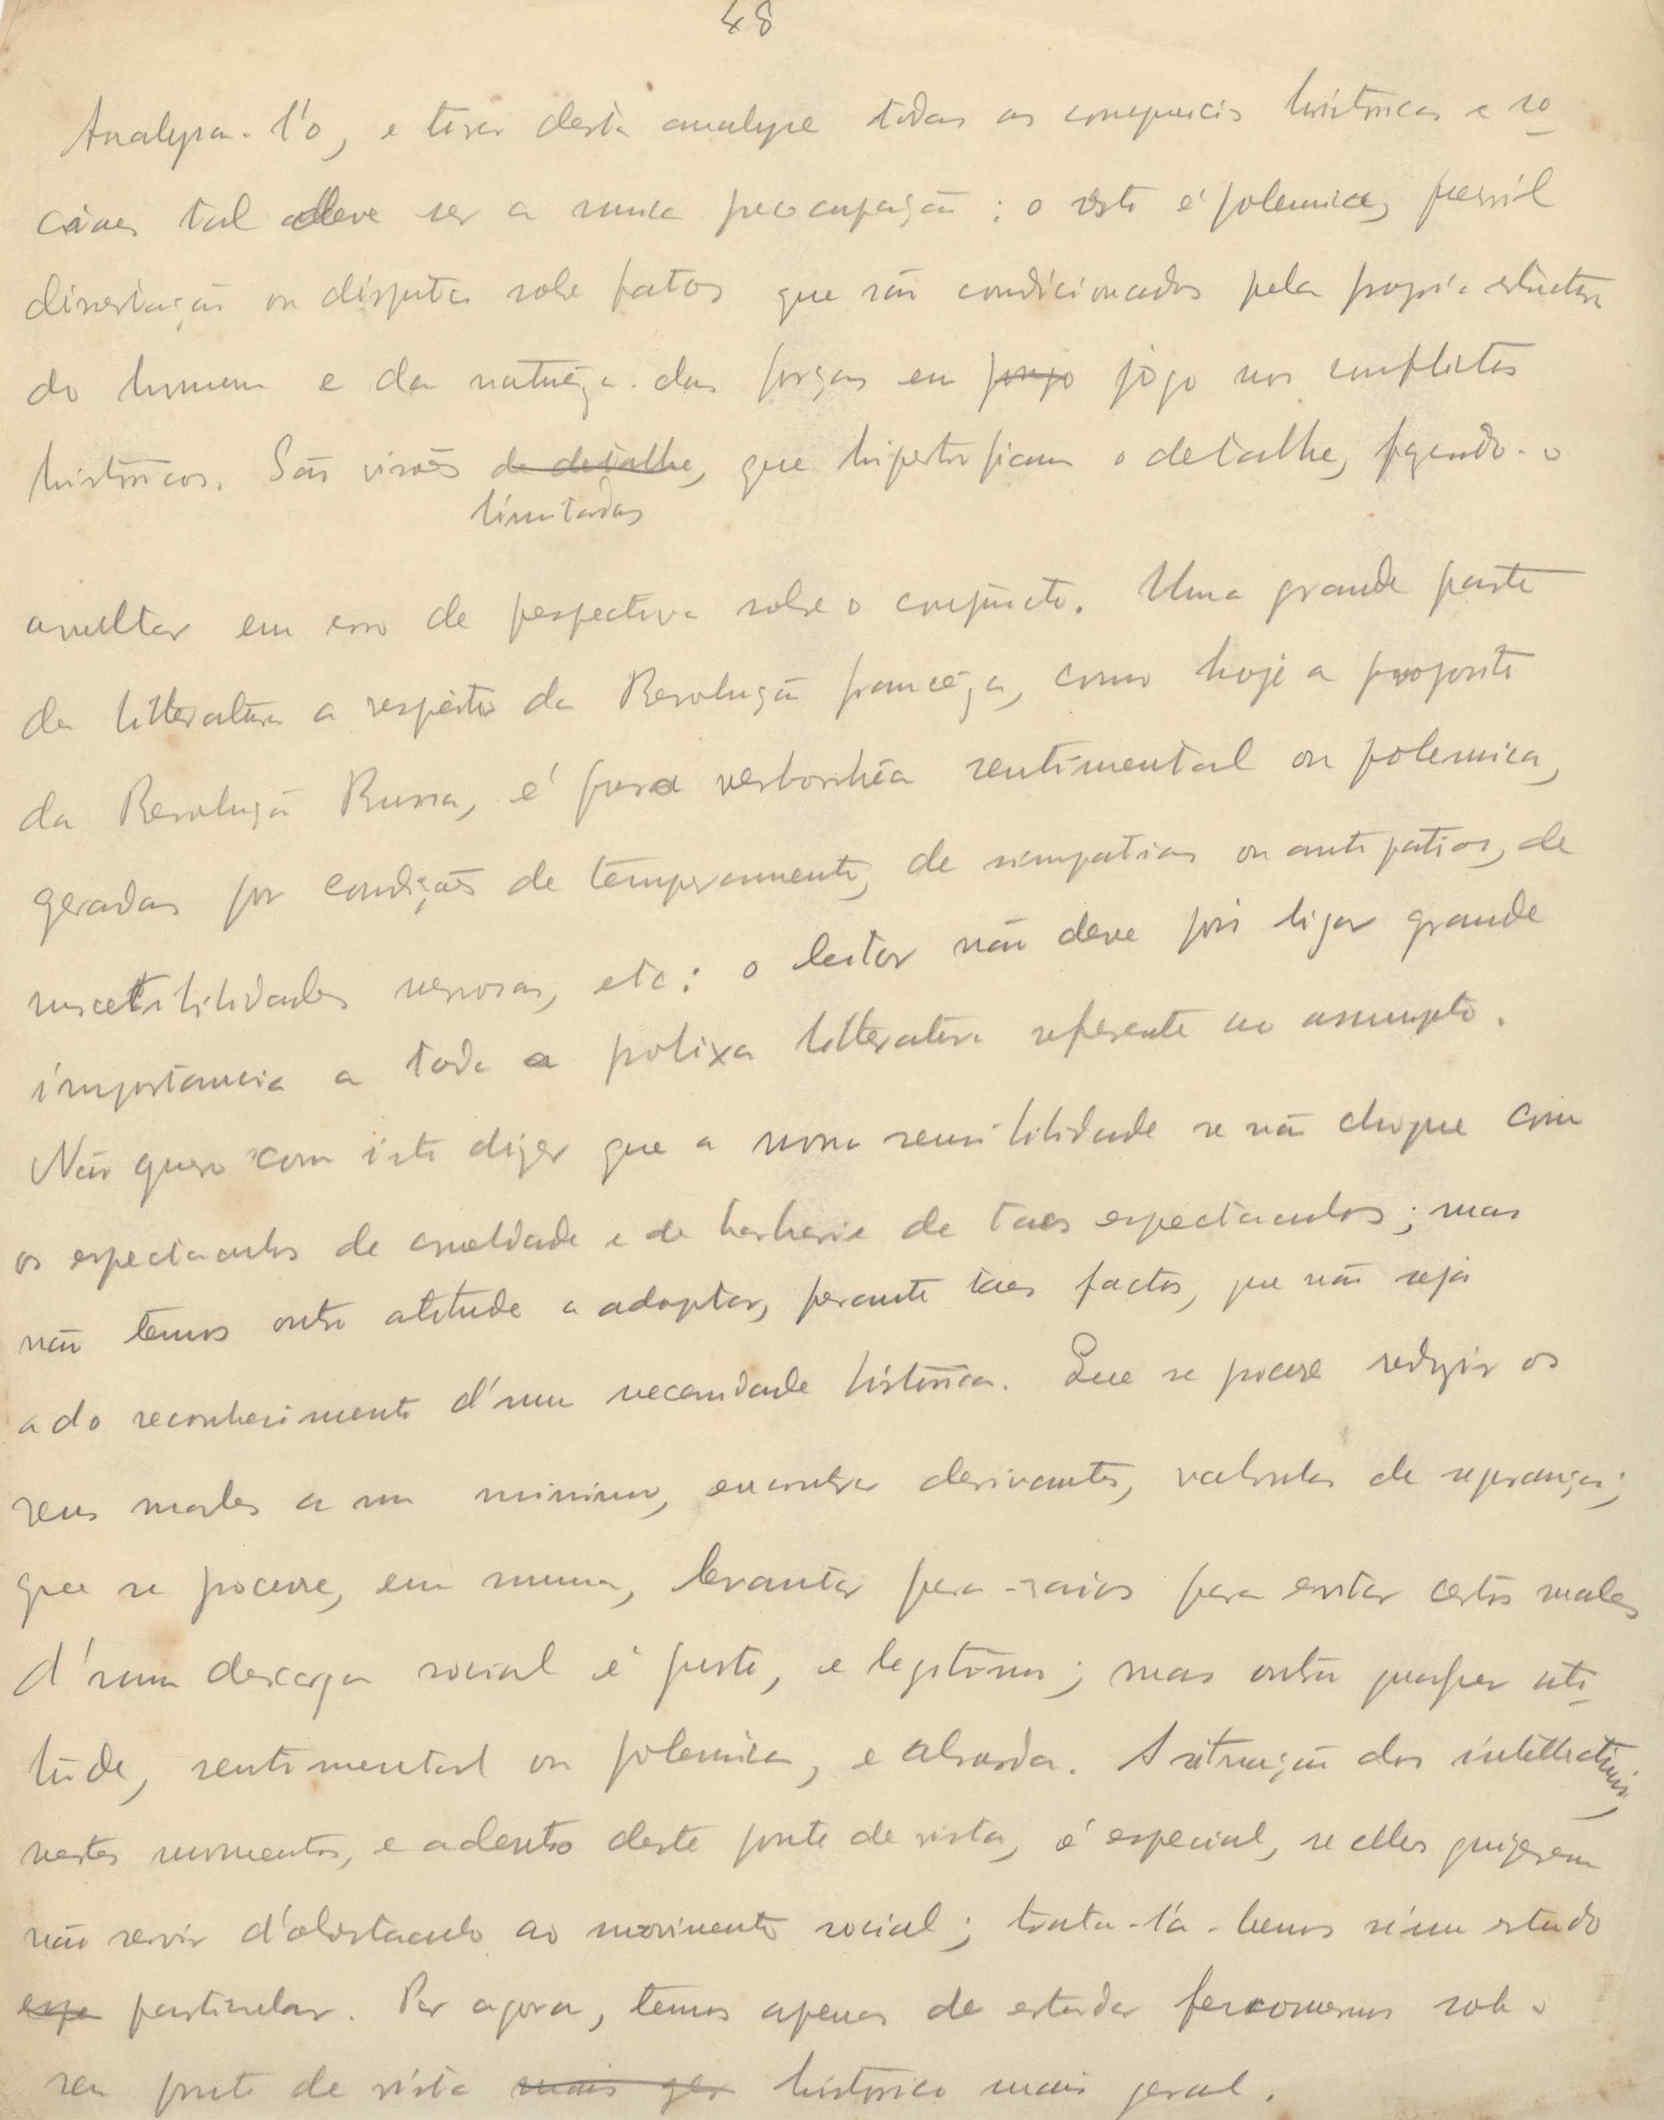 48
Analysa-l'o, e tirar desta analyse todas as consequencias historicas e so
ciaes tal deve ser a nossa preocupação : o resto é polemica, pueril
dissertação ou disputa sobre fatos que são condicionados pela propria estructura
do homem e da natureza das forças em jogo nos conflictos
historicos. São visões de detalhe, que hipertrofiam o detalhe, fazendo-o
limitadas
avultar em erro de perspectiva sobre o conjuncto. Uma grande parte
da litteratura a respeito da Revolução franceza, como hoje a proposito
da Revolução Russa, é pura verborrhéa sentimental ou polemica,
geradas por condições de temperamento, de simpatias ou antipatias, de
suscetibilidades nervosas, etc: o leitor não deve pois ligar grande
importancia a toda a prolixa litteratura referente ao assumpto.
Não quero com isto dizer que a nossa sensibilidade se não choque com
os espectaculos de crueldade e de barbarie de taes espectaculos; mas
não temos outra atitude a adoptar, perante taes factos, que não seja
a do reconhecimento d'uma necessidade historica. Que se procure reduzir os
seus males a um minimo, encontrar derivantes, valvulas de segurança;
que se procure, em summa, levantar para-raios para evitar certos males
d'uma descarga social é justo, e legitimo; mas outra qualquer ati
tude, sentimental ou polemica, e absurda. A situação dos intellectuais,
nestes momentos, e adentro deste ponto de vista, é especial, se elles quizerem
não servir d'obstaculo ao movimento social; trata-la-hemos n'um estudo
espe particular. Por agora, temos apenas de estudar fenomenos sob o
seu ponto de vista mais ger historico mais geral.